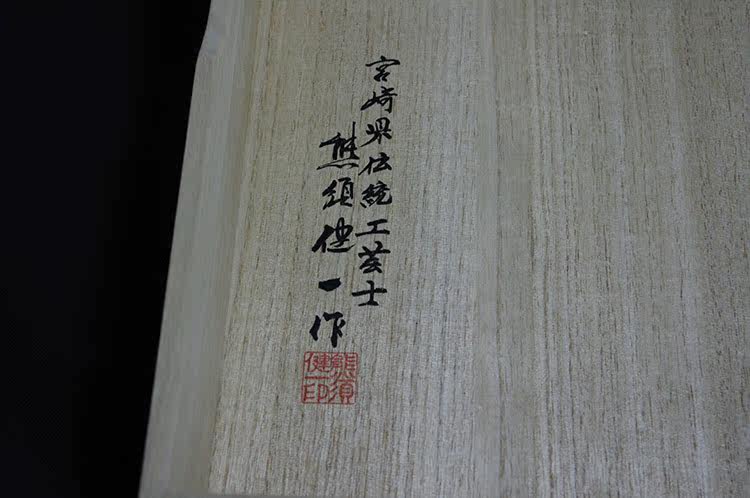 宮崎県伝統工芸士
熊須健一作
熊須
健一印